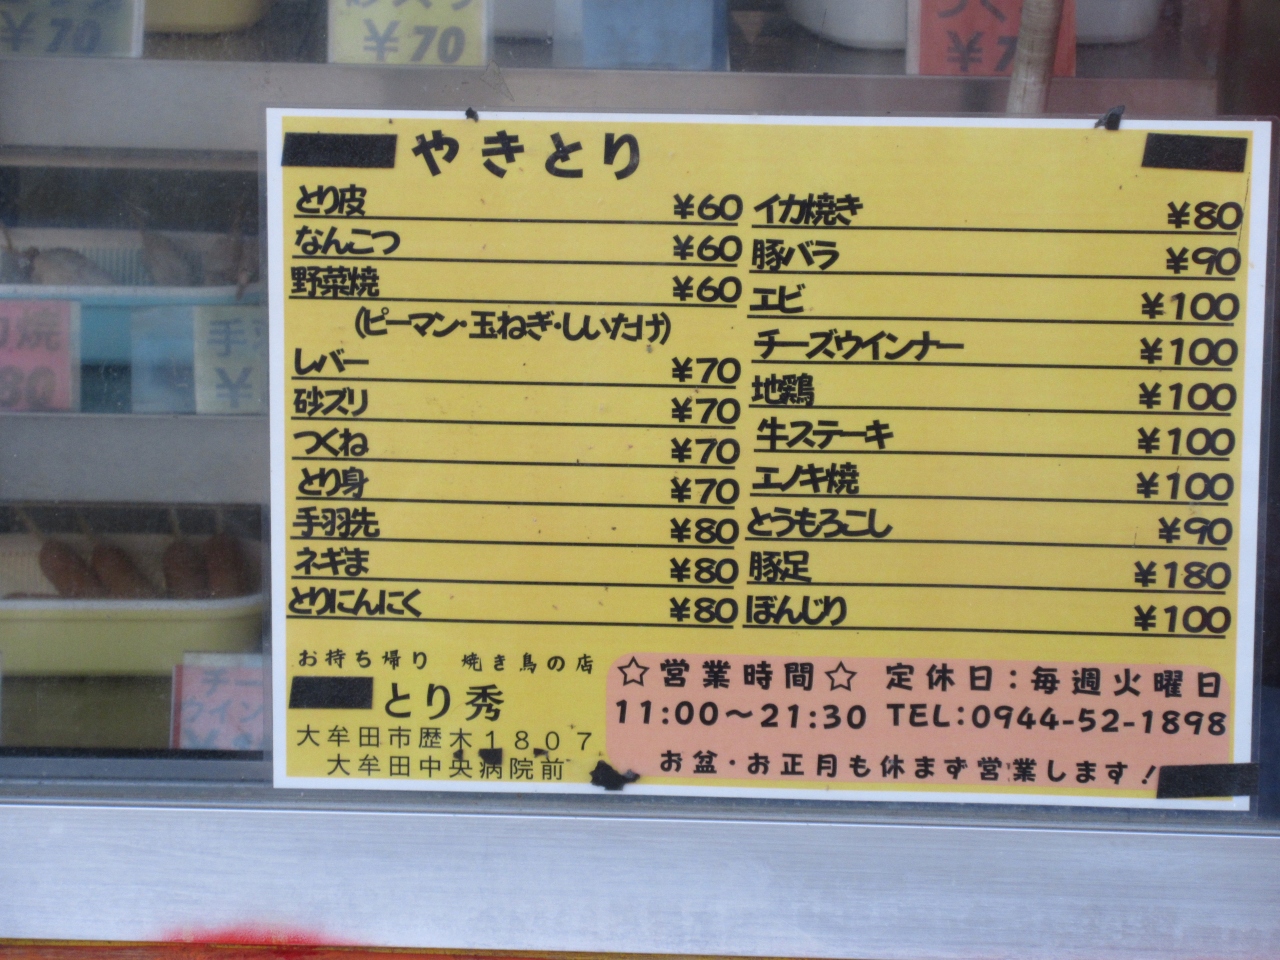 ¥70
¥70
やきとり
とり皮 ¥60
なんこつ ¥60
野菜焼 ¥60
(ピーマン・玉ねぎ・しいたけ)
レバー ¥70
砂ズリ ¥70
つくね ¥70
とり身 ¥70
手羽先 ¥80
ネギま ¥80
とりにんにく ¥80
イカ焼き ¥80
豚バラ ¥90
エビ ¥100
チーズウインナー ¥100
地鶏 ¥100
牛ステーキ ¥100
エノキ焼 ¥100
とうもろこし ¥90
豚足 ¥180
ぼんじり ¥100
お持ち帰り 焼き鳥の店
とり秀
大牟田市歴木1807
大牟田中央病院前
☆営業時間☆ 定休日:毎週火曜日
11:00〜21:30 TEL:0944-52-1898
お盆・お正月も休まず営業します!